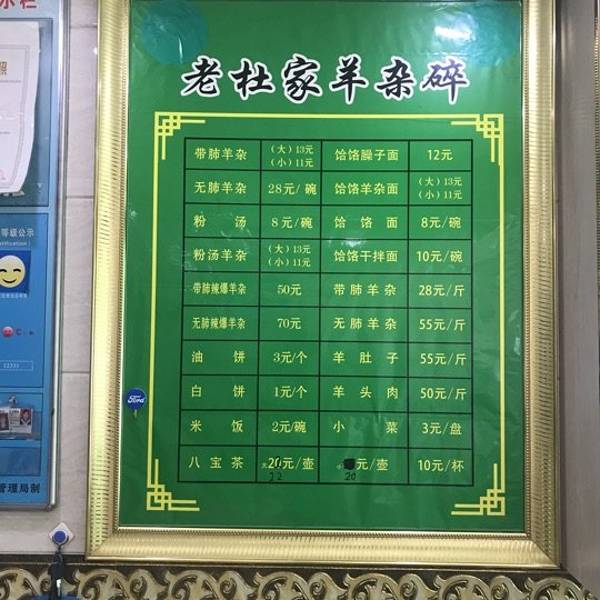 示栏
照
老杜家羊杂碎
带肺羊杂 (大)13元 (小)11元 饸饹臊子面 12元
无肺羊杂 28元/碗 饸饹羊杂面 (大)13元 (小)11元
粉汤 8元/碗 饸饹面 8元/碗
粉汤羊杂 (大)13元 (小)11元 饸饹干拌面 10元/碗
带肺辣爆羊杂 50元 带肺羊杂 28元/斤
无肺辣爆羊杂 70元 无肺羊杂 55元/斤
油饼 3元/个 羊肚子 55元/斤
白饼 1元/个 羊头肉 50元/斤
米饭 2元/碗 小菜 3元/盘
八宝茶 大20元/壶 22 小 元/壶 20 10元/杯
等级公示
Ford
12331
管理局制